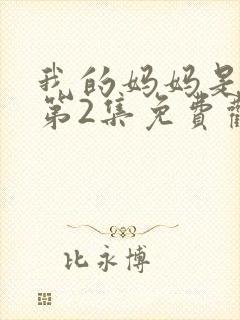 我的妈妈是
第2集免費
比永博